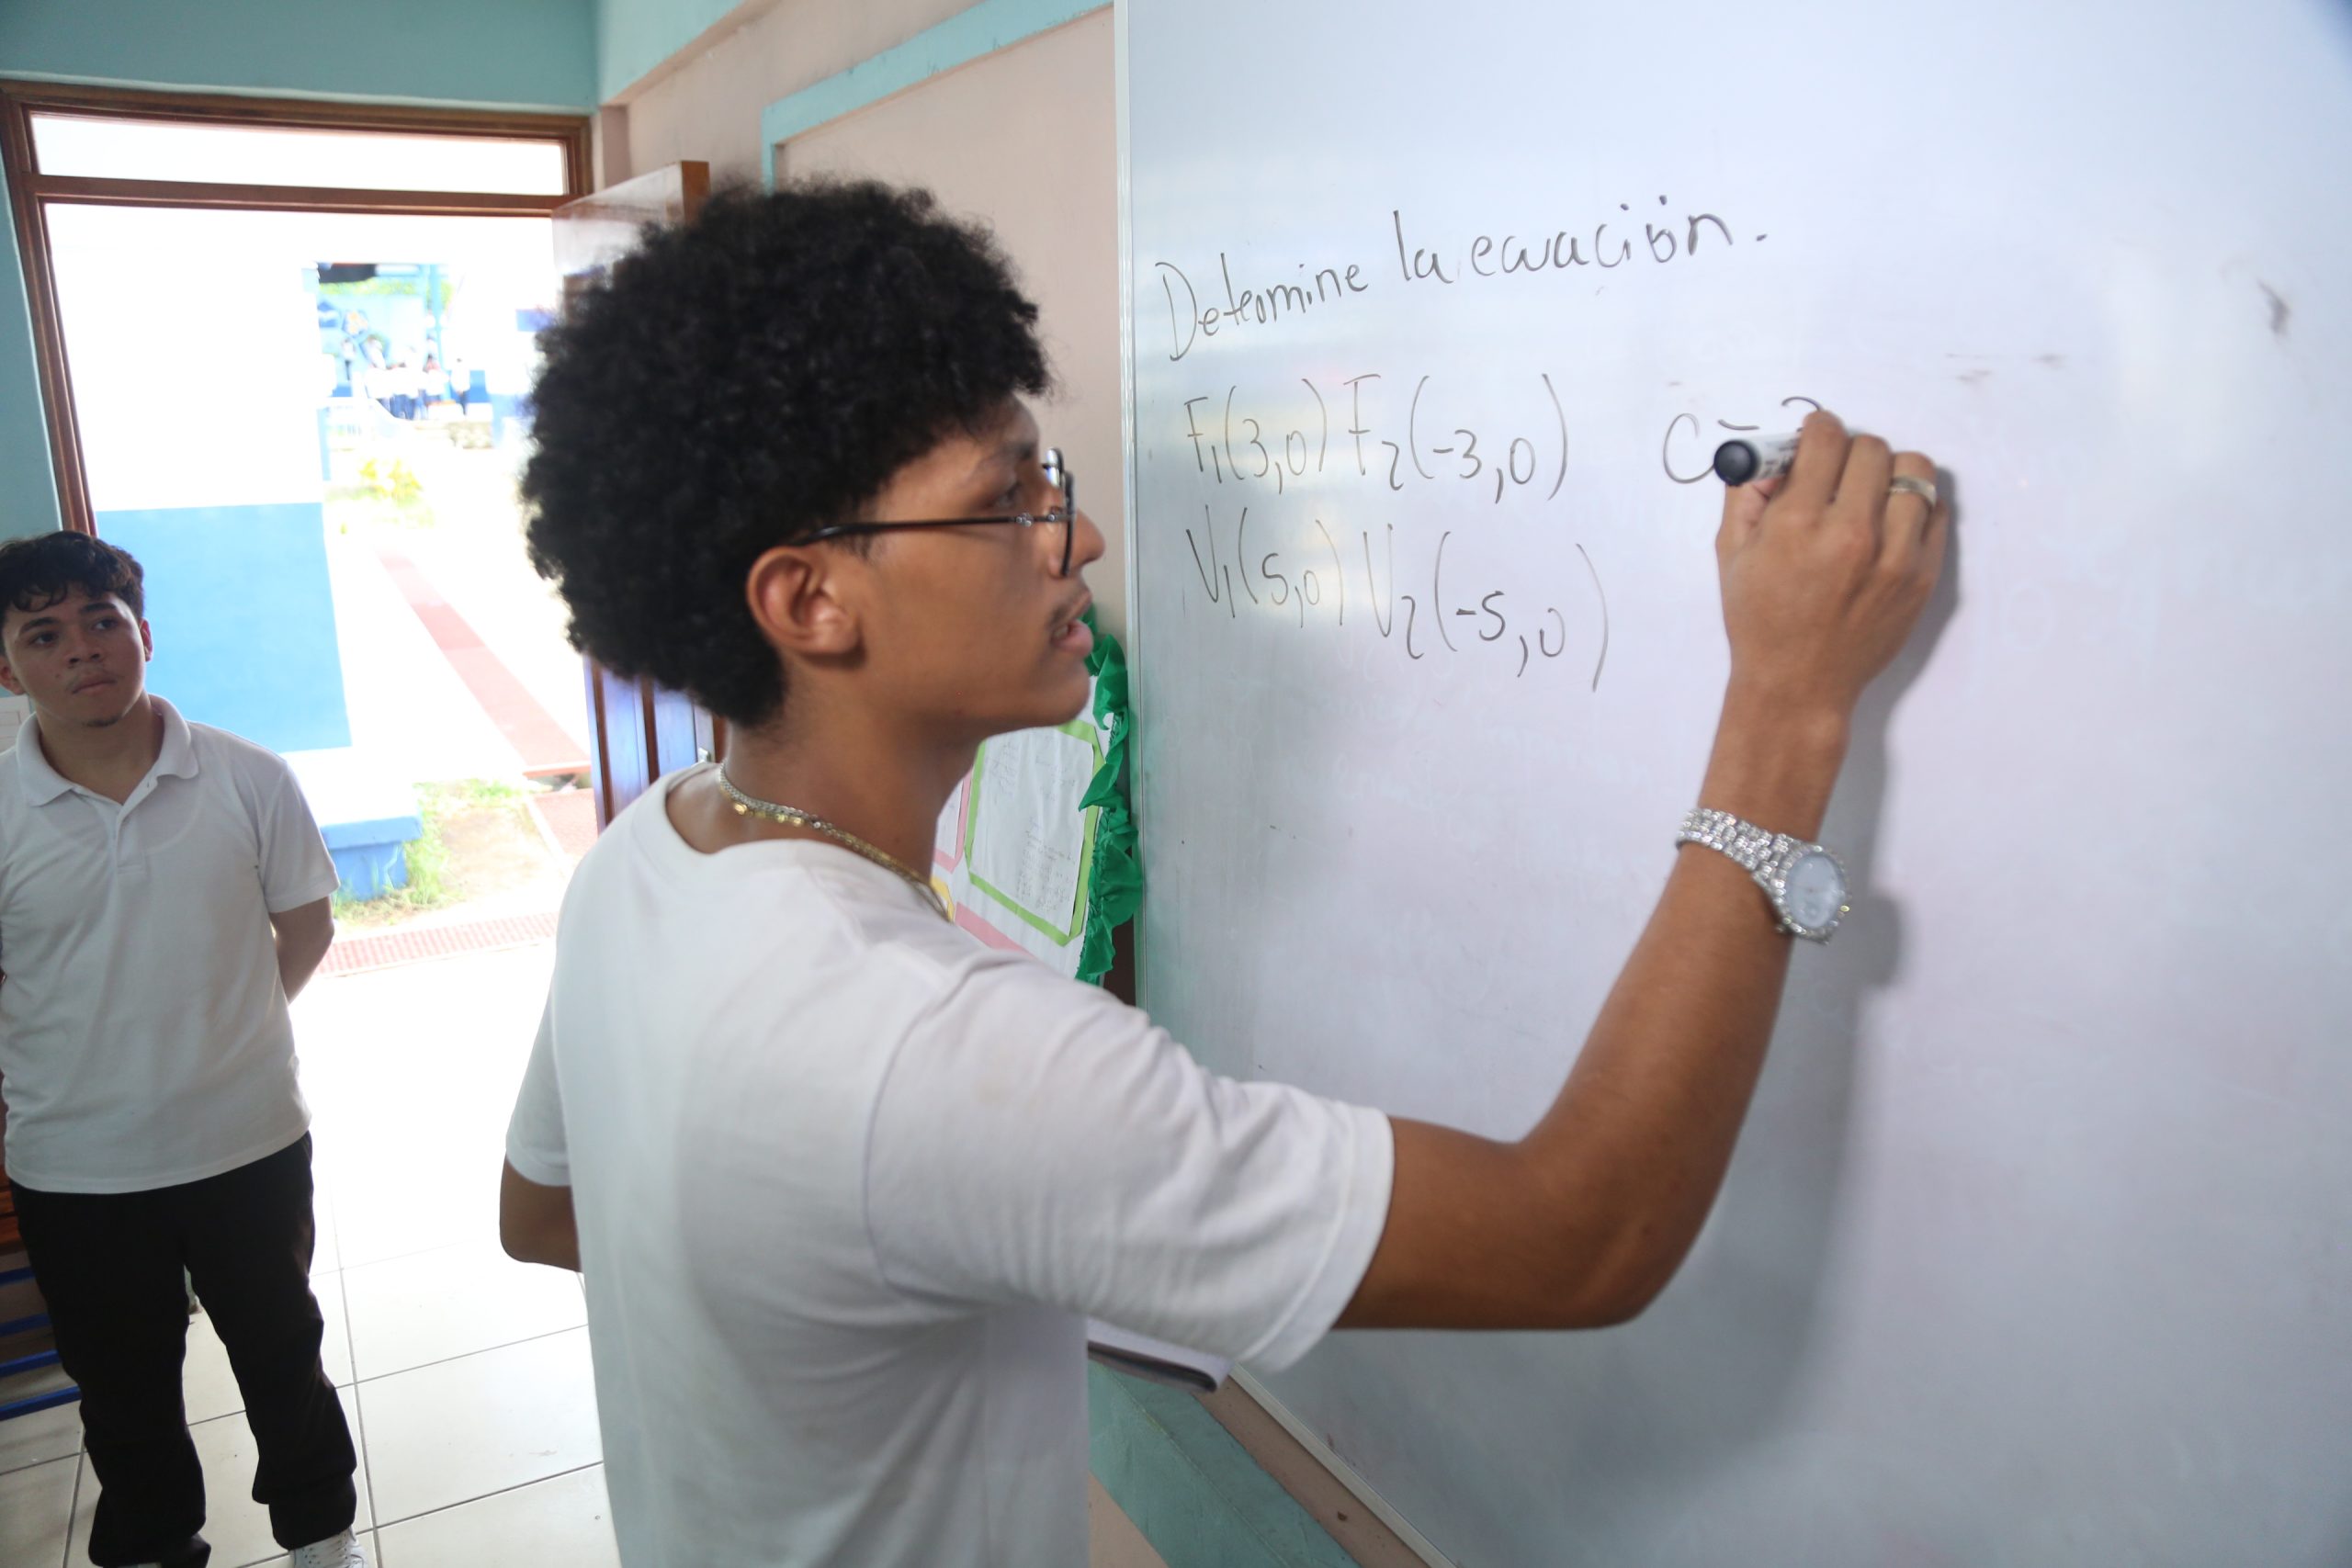 Determine la ecuación.
F1(3,0) F2(-3,0) C=
V1(5,0) V2(-5,0)